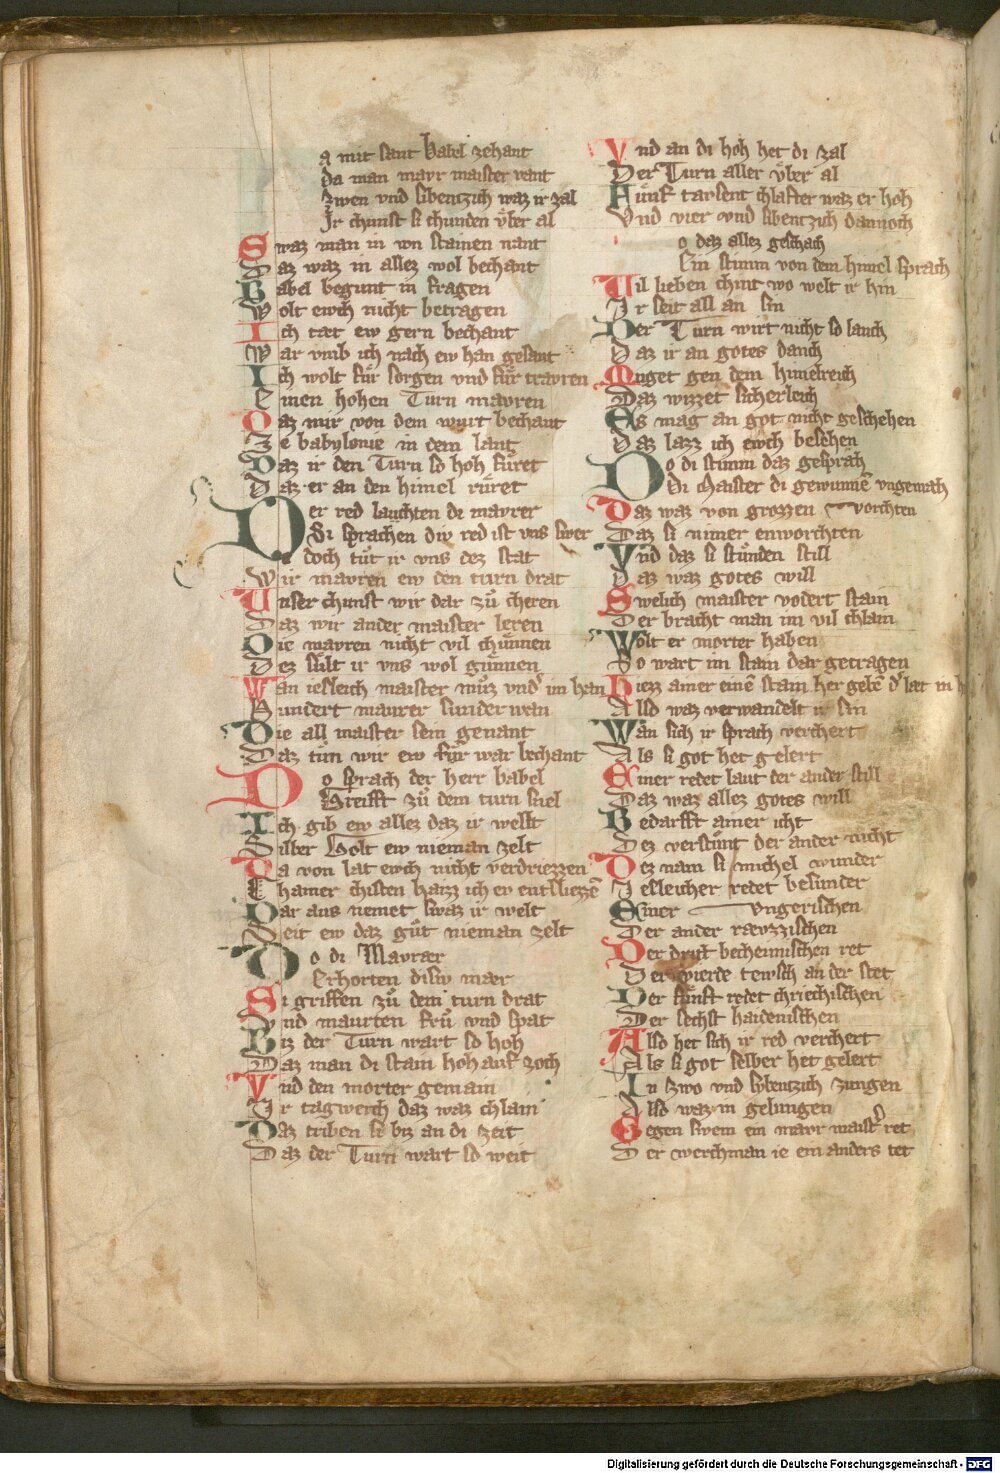 a mit sant babel zehant
Da man mayr maister vant
Zwen vnd sibentzich waz ir zal
Ir chunst si chunden vͤber al
Swaz man in von stainen nant
Daz waz in allez wol bechant
Babel begunt in fragen
Wolt ewch nicht betragen
Ich tæt ew gern bechant
War vmb ich nach ew han gesant
Ich wolt fuͤr sorgen vnd fuͤr travren
Einen hohen Turn mavren
Daz mir von dem wurt bechant
Ze babylonie in dem lant
Daz ir den Turn so hoh fuͤret
Daz er an den himel ruͤret
Der red lachten di mavrer
Si sprachen div red ist vns swer
Idoch tuͤt ir vns dez stat
Wir mavren ew den turn drat
Vnser chunst wir dar zuͦ cheren
Daz wir ander maister leren
Die mavren nicht vil chuͤnnen
Dez suͤlt ir vns wol guͤnnen
Wan iesleich maister muͦz vnder im han
Hundert maurer sunder wan
Die all maister sein genant
Daz tuͤn wir ew fuͤr war bechant
Do sprach der herr babel
Greifft zuͦ dem turn snel
Ich gib ew allez daz ir wellt
Silber Golt ew nieman zelt
Da von lat ewch nicht verdriezzen
Chamer chisten haizz ich ev entsliezzē
Dar aus nemet swaz ir welt
Seit ew daz guͦt nieman zelt
Do di Mavrær
Erhorten disiv mær
Si griffen zuͦ dem turn drat
Vnd maurten fruͦ vnd spat
Biz der Turn wart so hoh
Daz man di stain hoh auf zoch
Vnd den morter gemain
Ir tagwerch daz waz chlain
Daz triben si biz an di zeit
Daz der Turn wart so weit
Vnd an di hoh het di zal
Der Turn aller vͤber al
Fuͤnf tavsent chlafter waz er hoh
Vnd vier vnd sibentzich dannoch
o daz allez geschach
Ein stimm von dem himel sprach
Vil lieben chint wo welt ir hin
Ir seit all an sin
Der Turn wirt nicht so lanch
Daz ir an gotes danch
Muget gen dem himelreich
Daz wizzet sicherleich
Es mag an got nicht geschehen
Daz lazz ich ewch besehen
Do di stimm daz gesprah
Di Maister di gewunnē vngemah
Daz waz von grozzen vorchten
Daz si nimer enworchten
Vnd daz si stuͤnden still
Daz waz gotes will
Swelich maister vodert stain
Der bracht man im vil chlain
Wolt er morter haben
So wart im stain dar getragen
Hiezz ainer einē stain her gebē
Also waz verwandelt ir sin
Wan sich ir sprach verchert
Als si got het gelert
Einer redet laut der ander still
Daz waz allez gotes will
Bedarfft ainer icht
Dez verstuͤnt der ander nicht
Dez nam si michel wunder
Iesleicher redet besunder
Einer vngerischen
Der ander rævzzischen
Der dritt becheimischen ret
Der vierde tewsch an der stet
Der fuͤnft redet chriechischen
Der sechst haidenischen
Also het sich ir red verchert
Als si got selber het gelert
In zwo vnd sibentzich zungen
Also waz in gelungen
Gegen swem ein mavr maister ret
Der werchman ie ein anders tet
Digitalisierung gefördert durch die Deutsche Forschungsgemeinschaft - DFG